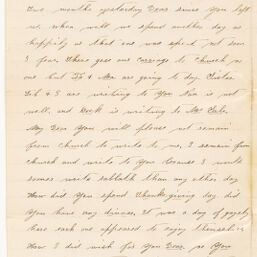 Two months yesterday Dear since You left
us, when will we spend another day as
happily as that one was spent not soon
I fear. There goes our carriage to Church no
one but Pa & Ma are going to day. Sister
Lib & I are writing to You Nin is not
well, and Dock is writing to Mr
My Dear You will please not remain
from Church to write to me, I remain from
church and write to You Cause I would
sooner write sabbath than any other day
How did You spend Thanksgiving day did
You have any dinner. It was a day of gayety
here each one appeared to enjoy themselves
How I did wish for You Dear, so You